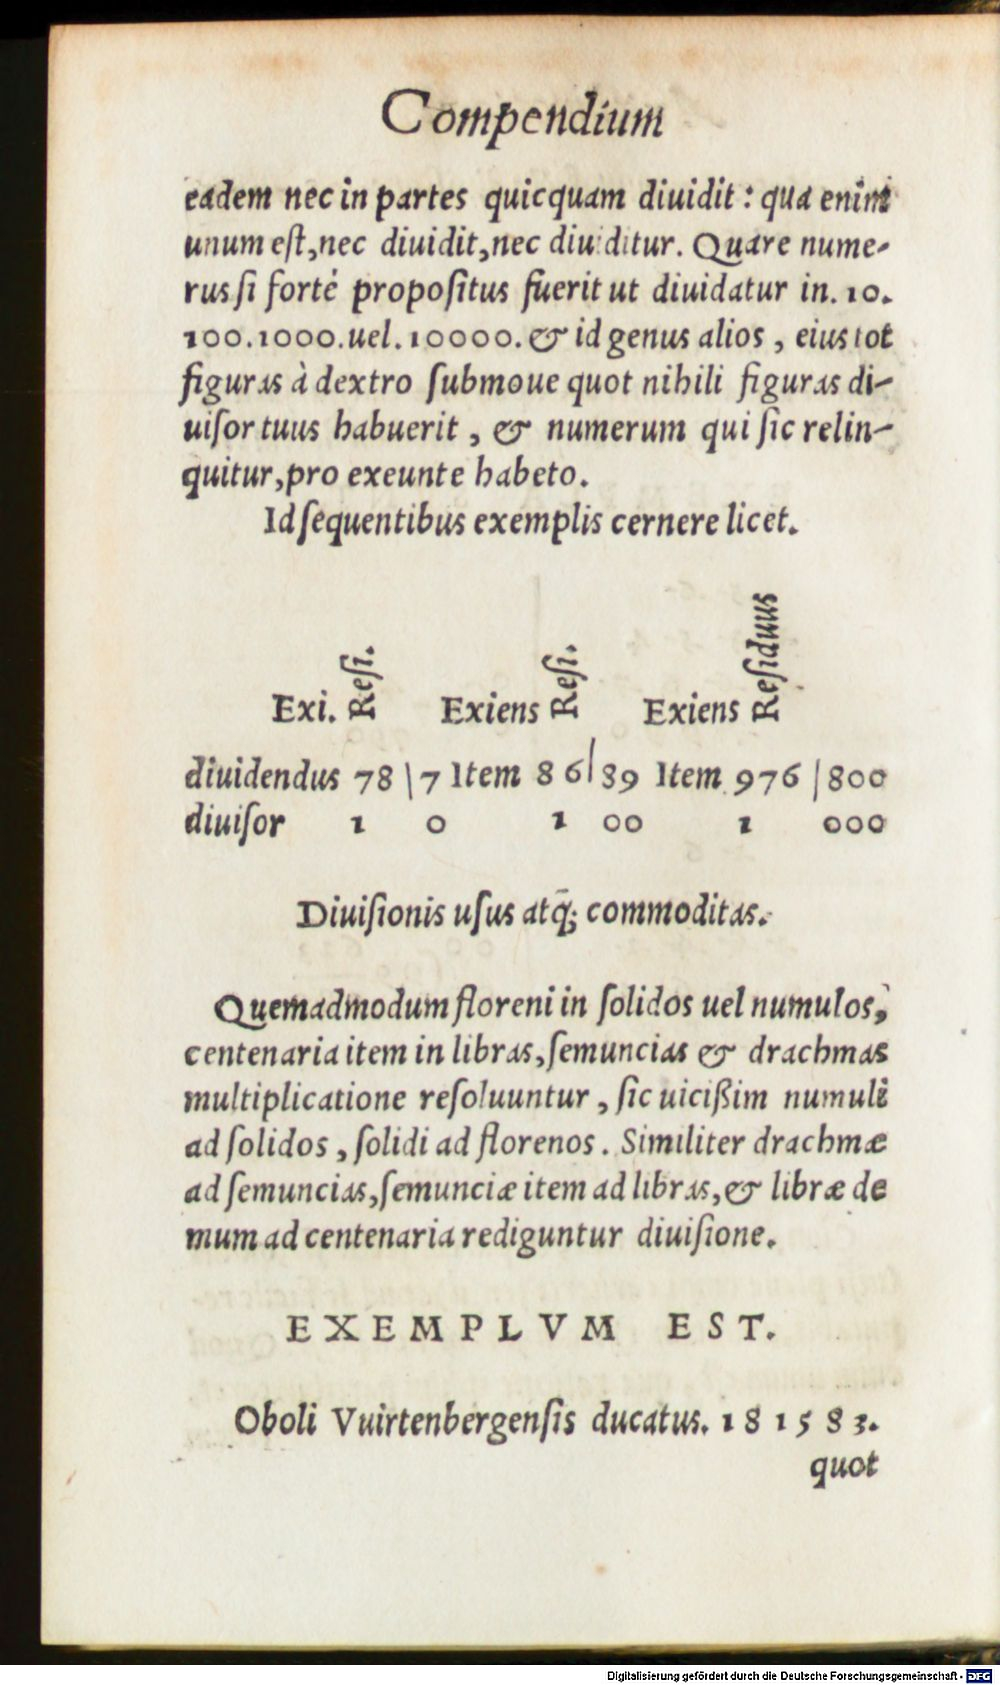 Compendium
eadem nec in partes quicquam diuidit : qua enim
unum eſt,nec diuidit,nec diuiditur. Quare nume-
rus ſi forté propoſitus fuerit ut diuidatur in. 10.
100.1000.uel.10000.& id genus alios , eius tot
figuras à dextro ſubmoue quot nihili figuras di-
uiſor tuus habuerit , & numerum qui ſic relin-
quitur,pro exeunte habeto.
Id ſequentibus exemplis cernere licet.
Exi. Reſi. Exiens Reſi. Exiens Reſiduus
diuidendus 78 | 7 Item 86 | 39 Item 976 | 800
diuiſor 1 0 1 00 1 000
Diuiſionis uſus atq̃; commoditas.
Quemadmodum floreni in ſolidos uel numulos,
centenaria item in libras,ſemuncias & drachmas
multiplicatione reſoluuntur , ſic uicißim numuli
ad ſolidos , ſolidi ad florenos . Similiter drachmæ
ad ſemuncias,ſemunciæ item ad libras,& libræ de
mum ad centenaria rediguntur diuiſione.
EXEMPLVM EST.
Oboli Vuirtenbergenſis ducatus. 181583.
quot
Digitalisierung gefördert durch die Deutsche Forschungsgemeinschaft - DFG